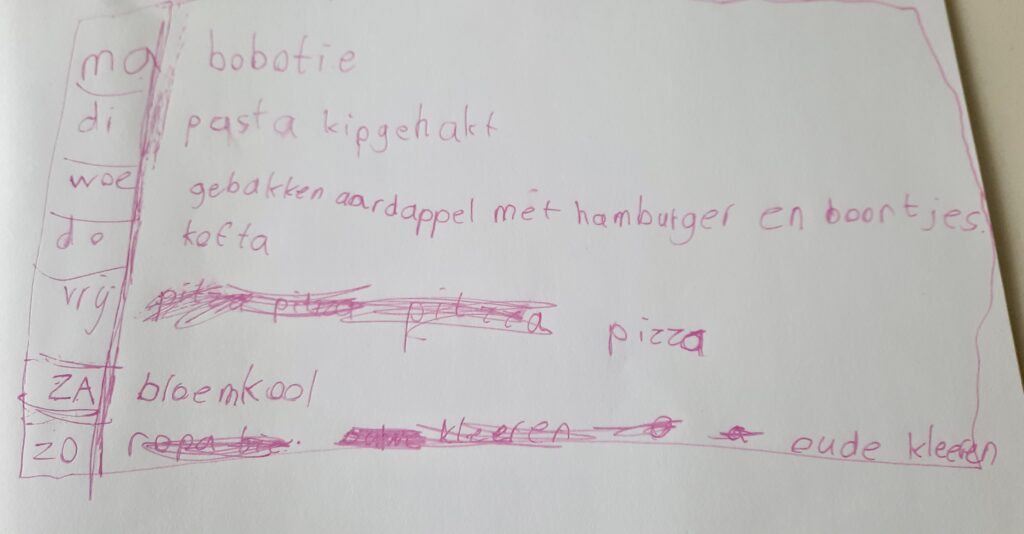 ma bobotie
di pasta kipgehakt
woe gebakken aardappel met hamburger en boontjes.
do kofta
vrij pizza
ZA bloemkool
ZO oude kleeren